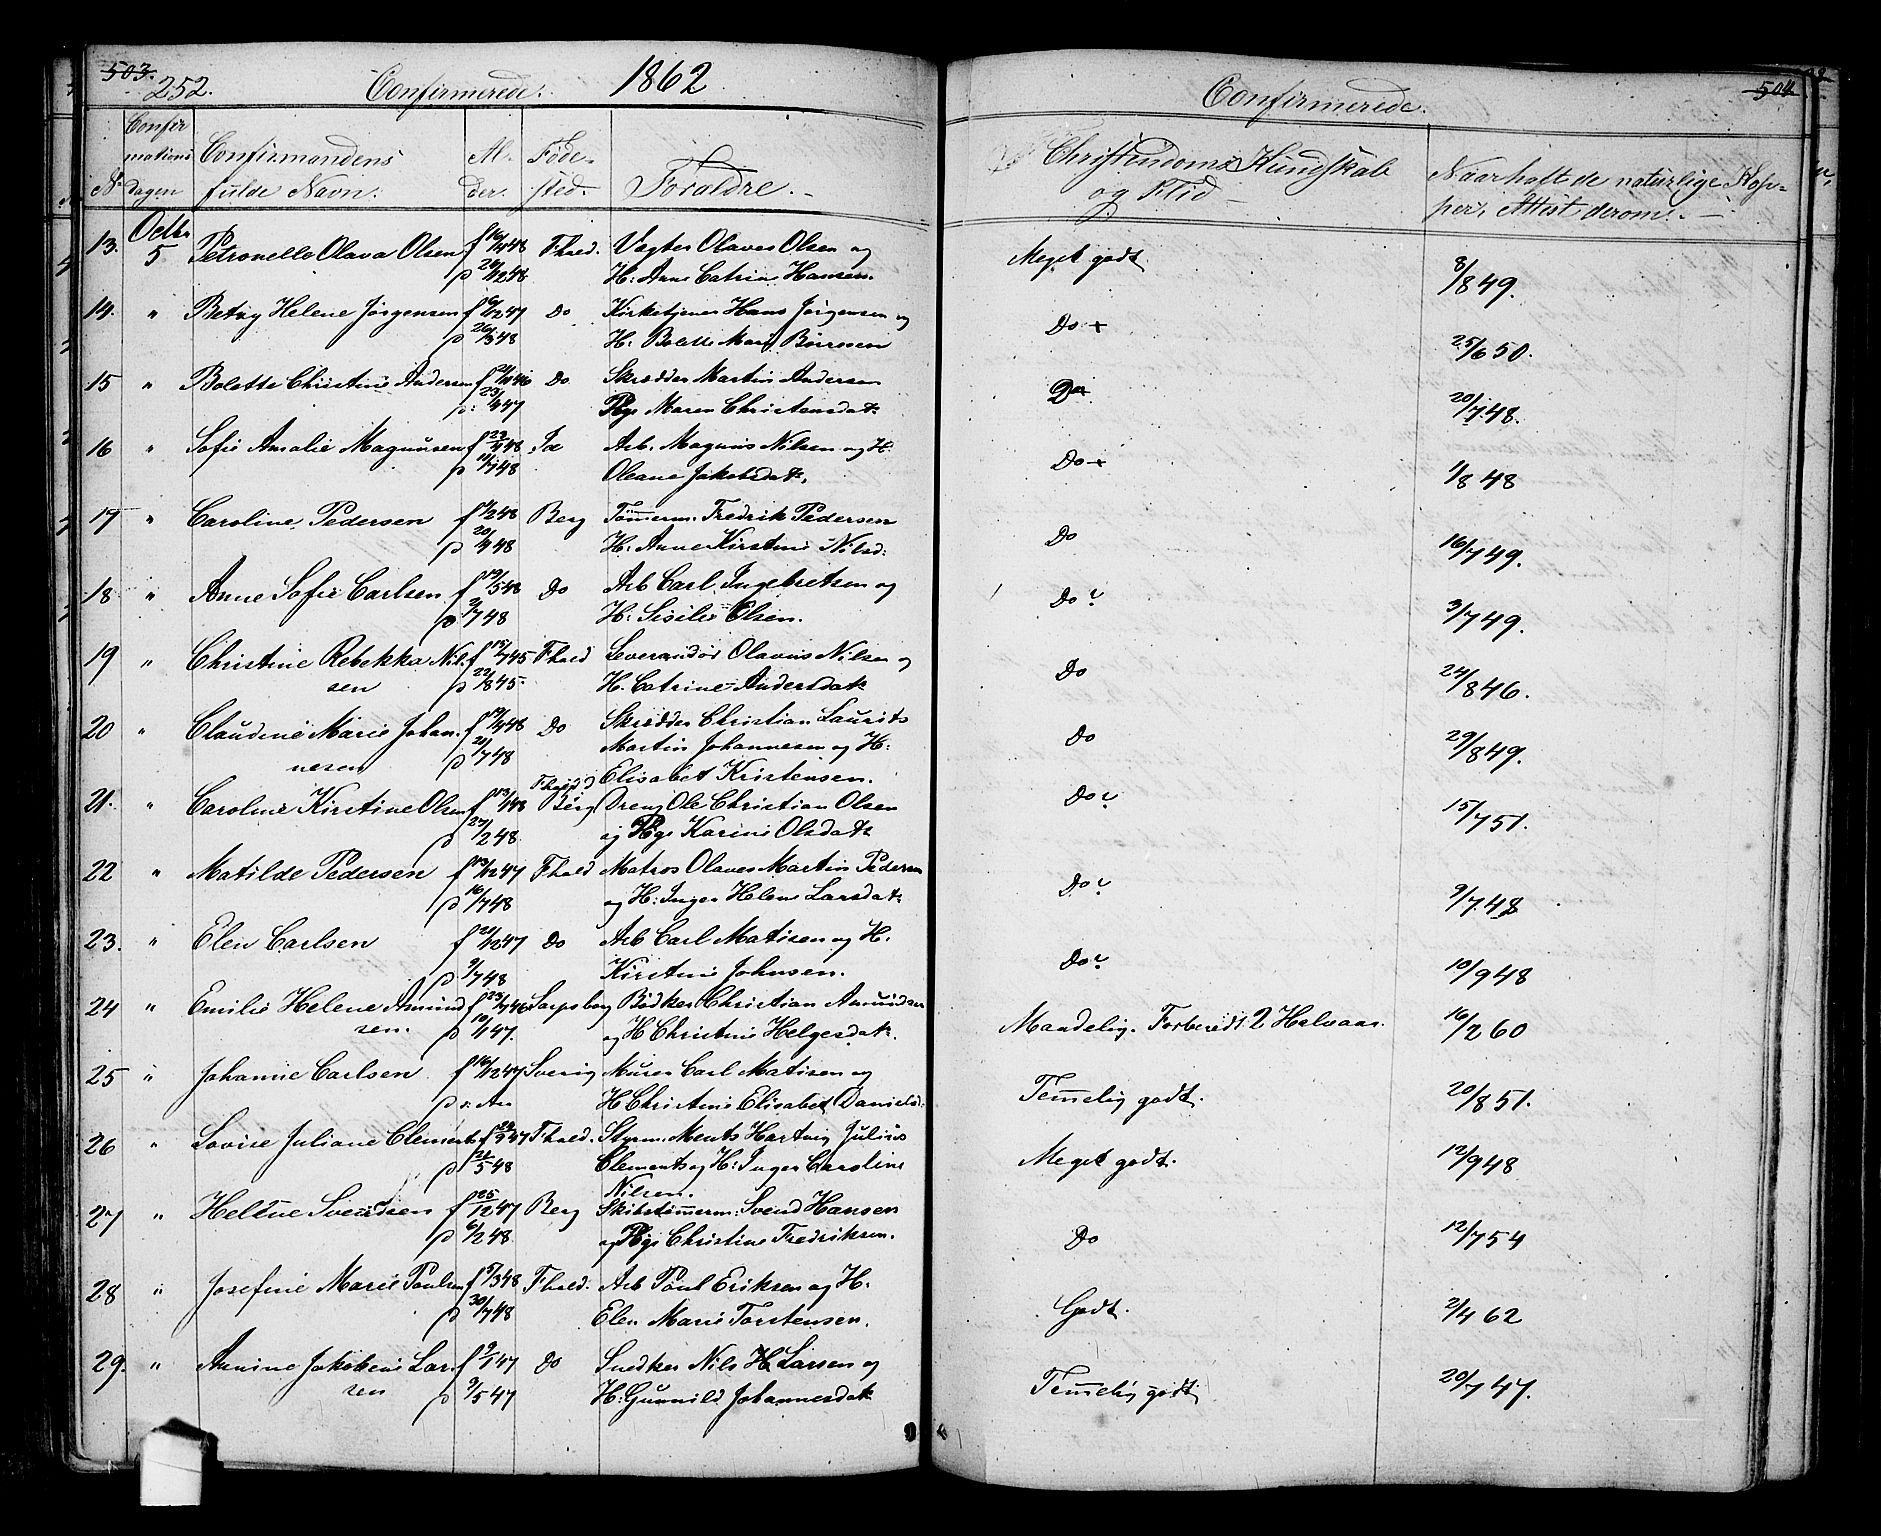 503.
252.
Confirmerede.
1862
No
Confir
mations
dagen
Confirmandens
fulde Navn:
Al-
der.
Føde-
sted-
Foraldre.
13.
Octbr
5
Petronelle Olava Olsen
f 16/4 48
F hald.
Vagter Olaves Olsen og
p 26/12 48
H: Anne Catrine Hansen.
14.
"
Betzy Helene Jørgensen
f 9/12 47
Do
Kirketjener Hans Jørgensen og
p 26/3 48
H. Bolette Marg Børresen
15
"
Bolette Christine Andersen
f 21/11 46
Do
Skrædder Martin Andersen
p: 23/4 47
Pge Maren Christensdatr
16
"
Sofie Amalie Magnusen
f 22/4 48
Id
Arb. Magnus Nilsen og H.
p 11/7 48
Oleane Jakobsdatr,
17
"
Caroline Pedersen
f 1/2 48
Berg
Tømmerm. Fredrik Pedersen
p 20/4 48
H. Anne Kirstine Nilsd:
18
"
Anne Sofie Carlsen
f 19/5 48
Do
Arb Carl Ingebretsen og
p 2/7 48
H: Sisilie Olsen.
19
"
Christine Rebekka Nil-
f 15/7 45
F hald
Leverandør Olavus Nilsen og
sen
p 22/8 45
H. Catrine Andersdatr
20
"
Claudine Marie Johan-
f 19/4 48
Do
Skrædder Christian Laurits
nesen
p 21/7 48
Martin Johannesen og H:
Elisabet Kristensen.
21.
"
Caroline Kirstine Olsen
f 13/1 48
F hald
Berg
Dreng Ole Christian Olsen
p 27/2 48
og Pge Karine Olsdatr
22
"
Matilde Pedersen
f 13/12 47
F hald
Matros Olaves Martin Pedersen
p 16/7 48
og H: Inger Helene Larsdatr
23.
"
Elen Carlsen
f 21/12 47
Do
Arb Carl Matisen og H.
p 9/7 48
Kirstine Johnsen.
24
"
Emilie Helene Amund
f 23/7 46
Sarpsborg
Bødker Christian Amundsen
sen.
p 10/1 47.
og H Christine Helgesdatr.
25
"
Johanne Carlsen
f 16/12 47
Sverig
Murer Carl Matisen og
p
H Christine Elisabet Danielsd:
26
"
Lovise Juliane Clements
f 28/9 47
F hald.
Styrm. Ments Hartvig Julius
p 21/5 48
Clements og H: Inger Caroline
Nilsen.
27
"
Heline Svendsen
f 25/12 47
Berg
Skibstømmerm: Svend Hansen
p 6/2 48
og Pge Christine Fredriksen.
28
"
Josefine Marie Paulsen
f 5/3 48
F hald:
Arb Paul Eriksen og H:
p 30/7 48
Elen Marie Torstensen.
29.
"
Annine Jakobene Lar-
f 9/1 47
Do
Snedker Nils H Larsen og
sen
p 9/5 47
H: Gunnild Johannesdatr
504
Confirmerede.
Christendoms Kundskab
og Flid
Naar haft de naturlige Kop-
per, Attest derom.
Meget godt
8/8 49.
Do
25/6 50.
Do
20/7 48.
Do
1/8 48
Do
16/7 49.
Do
3/7 49.
Do
24/8 46.
Do
29/8 49.
Do
15/7 51.
Do
9/7 48
Do
10/9 48
Maadelig. Forberedt 2 Halvaar.
16/2 60
Temmelig godt.
20/8 51.
Meget godt.
12/9 48
Do
12/7 54
Godt.
2/4 62
Temmelig godt
20/7 47.